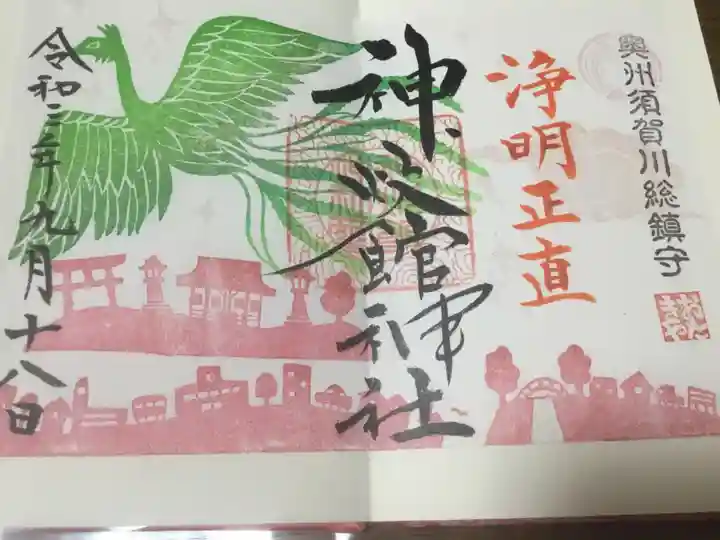 奥州須賀川総鎮守
浄明正直
神炊館神社
令和三年九月十八日